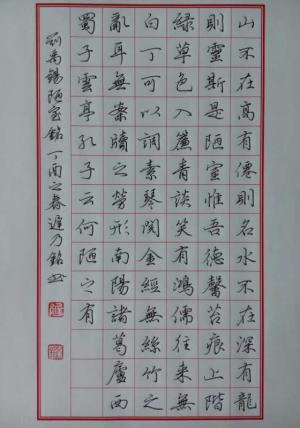 山不在高有僊則名水不在深有龍
則靈斯是陋室惟吾德馨苔痕上階
綠草色入簾青談笑有鴻儒往來無
白丁可以調素琴閱金經無絲竹之
亂耳無案牘之勞形南陽諸葛廬西
蜀子雲亭孔子云何陋之有
劉禹錫陋室銘丁酉之春遲乃銘书